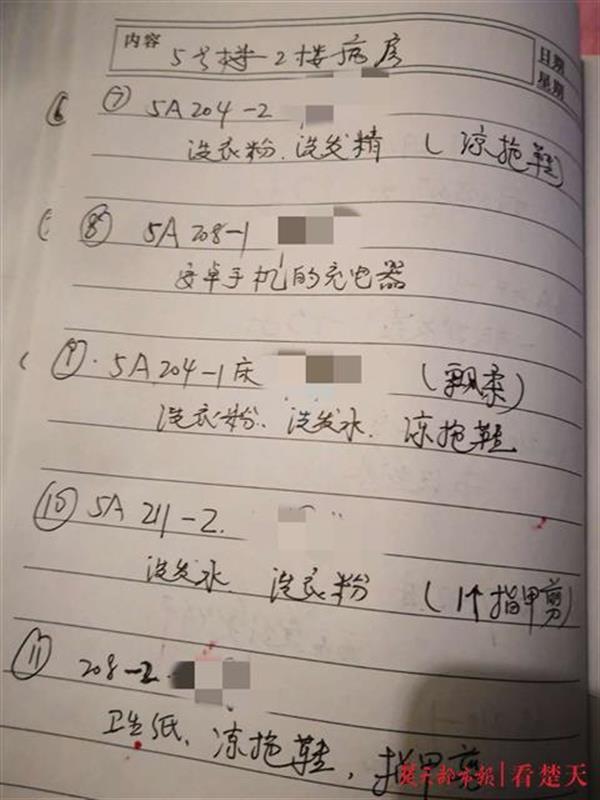 内容 5号楼2楼病房
日期
星期
⑦ 5A204-2
洗衣粉、洗发精 ( 凉拖鞋)
⑧ 5A 208-1
安卓手机的充电器
⑨. 5A 204-1床 (飘柔)
洗衣粉、洗发水、凉拖鞋
⑩ 5A 211-2.
洗发水、洗衣粉 (1个指甲剪)
⑪ 208-2.
卫生纸、凉拖鞋,指甲剪
楚天都市报|看楚天